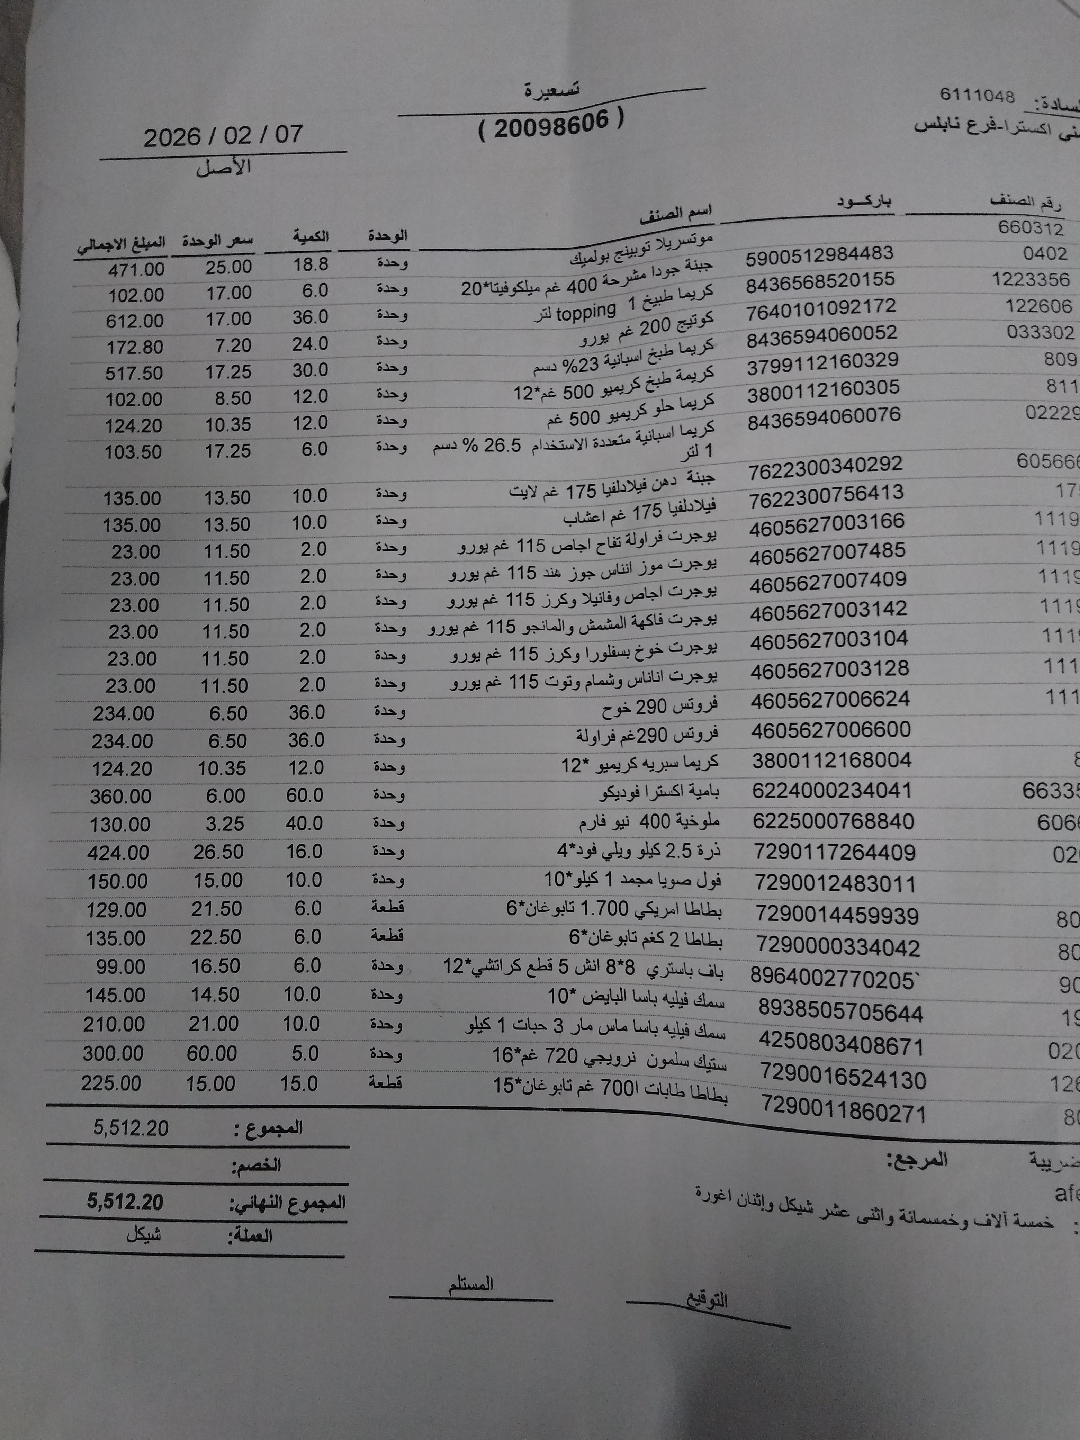 تسعيرة
( 20098606 )
6111048
2026 / 02 / 07
الأصل
اكسترا-فرع نابلس
رقم الصنف باركـــود اسم الصنف الوحدة الكمية سعر الوحدة المبلغ الاجمالي
660312 موتسريلا توبينج بولميك وحدة 18.8 25.00 471.00
0402 5900512984483 جبنة جودا مشرحة 400 غم ميلكوفيتا*20 وحدة 6.0 17.00 102.00
1223356 8436568520155 كريما طبيخ topping 1 لتر وحدة 36.0 17.00 612.00
122606 7640101092172 كوتيج 200 غم يورو وحدة 24.0 7.20 172.80
033302 8436594060052 كريما طبخ اسبانية 23% دسم وحدة 30.0 17.25 517.50
809 3799112160329 كريمة طبخ كريميو 500 غم*12 وحدة 12.0 8.50 102.00
811 3800112160305 كريما حلو كريميو 500 غم وحدة 12.0 10.35 124.20
02229 8436594060076 كريما اسبانية متعددة الاستخدام 26.5 % دسم وحدة 6.0 17.25 103.50
1 لتر
605666 7622300340292 جبنة دهن فيلادلفيا 175 غم لايت وحدة 10.0 13.50 135.00
17 7622300756413 فيلادلفيا 175 غم اعشاب وحدة 10.0 13.50 135.00
1119 4605627003166 يوجرت فراولة تفاح اجاص 115 غم يورو وحدة 2.0 11.50 23.00
1119 4605627007485 يوجرت موز انناس جوز هند 115 غم يورو وحدة 2.0 11.50 23.00
1119 4605627007409 يوجرت اجاص وفانيلا وكرز 115 غم يورو وحدة 2.0 11.50 23.00
1119 4605627003142 يوجرت فاكهة المشمش والمانجو 115 غم يورو وحدة 2.0 11.50 23.00
1119 4605627003104 يوجرت خوخ بسفلورا وكرز 115 غم يورو وحدة 2.0 11.50 23.00
111 4605627003128 يوجرت اناناس وشمام وتوت 115 غم يورو وحدة 2.0 11.50 23.00
111 4605627006624 فروتس 290 خوح وحدة 36.0 6.50 234.00
4605627006600 فروتس 290غم فراولة وحدة 36.0 6.50 234.00
8 3800112168004 كريما سبريه كريميو *12 وحدة 12.0 10.35 124.20
66335 6224000234041 بامية اكسترا فوديكو وحدة 60.0 6.00 360.00
606 6225000768840 ملوخية 400 نيو فارم وحدة 40.0 3.25 130.00
02 7290117264409 ذرة 2.5 كيلو ويلي فود*4 وحدة 16.0 26.50 424.00
7290012483011 فول صويا مجمد 1 كيلو*10 وحدة 10.0 15.00 150.00
80 7290014459939 بطاطا امريكي 1.700 تابوغان*6 قطعة 6.0 21.50 129.00
80 7290000334042 بطاطا 2 كغم تابوغان*6 قطعة 6.0 22.50 135.00
90 8964002770205` باف باستري 8*8 انش 5 قطع كراتشي*12 وحدة 6.0 16.50 99.00
19 8938505705644 سمك فيليه باسا البايض *10 وحدة 10.0 14.50 145.00
020 4250803408671 سمك فيليه باسا ماس مار 3 حبات 1 كيلو وحدة 10.0 21.00 210.00
126 7290016524130 ستيك سلمون نرويجي 720 غم*16 وحدة 5.0 60.00 300.00
80 7290011860271 بطاطا طابات ا700 غم تابوغان*15 قطعة 15.0 15.00 225.00
المجموع : 5,512.20
الخصم:
المجموع النهائي: 5,512.20
العملة: شيكل
المرجع:
خمسة آلاف وخمسمائة واثنى عشر شيكل وإثنان اغورة
المستلم
التوقيع